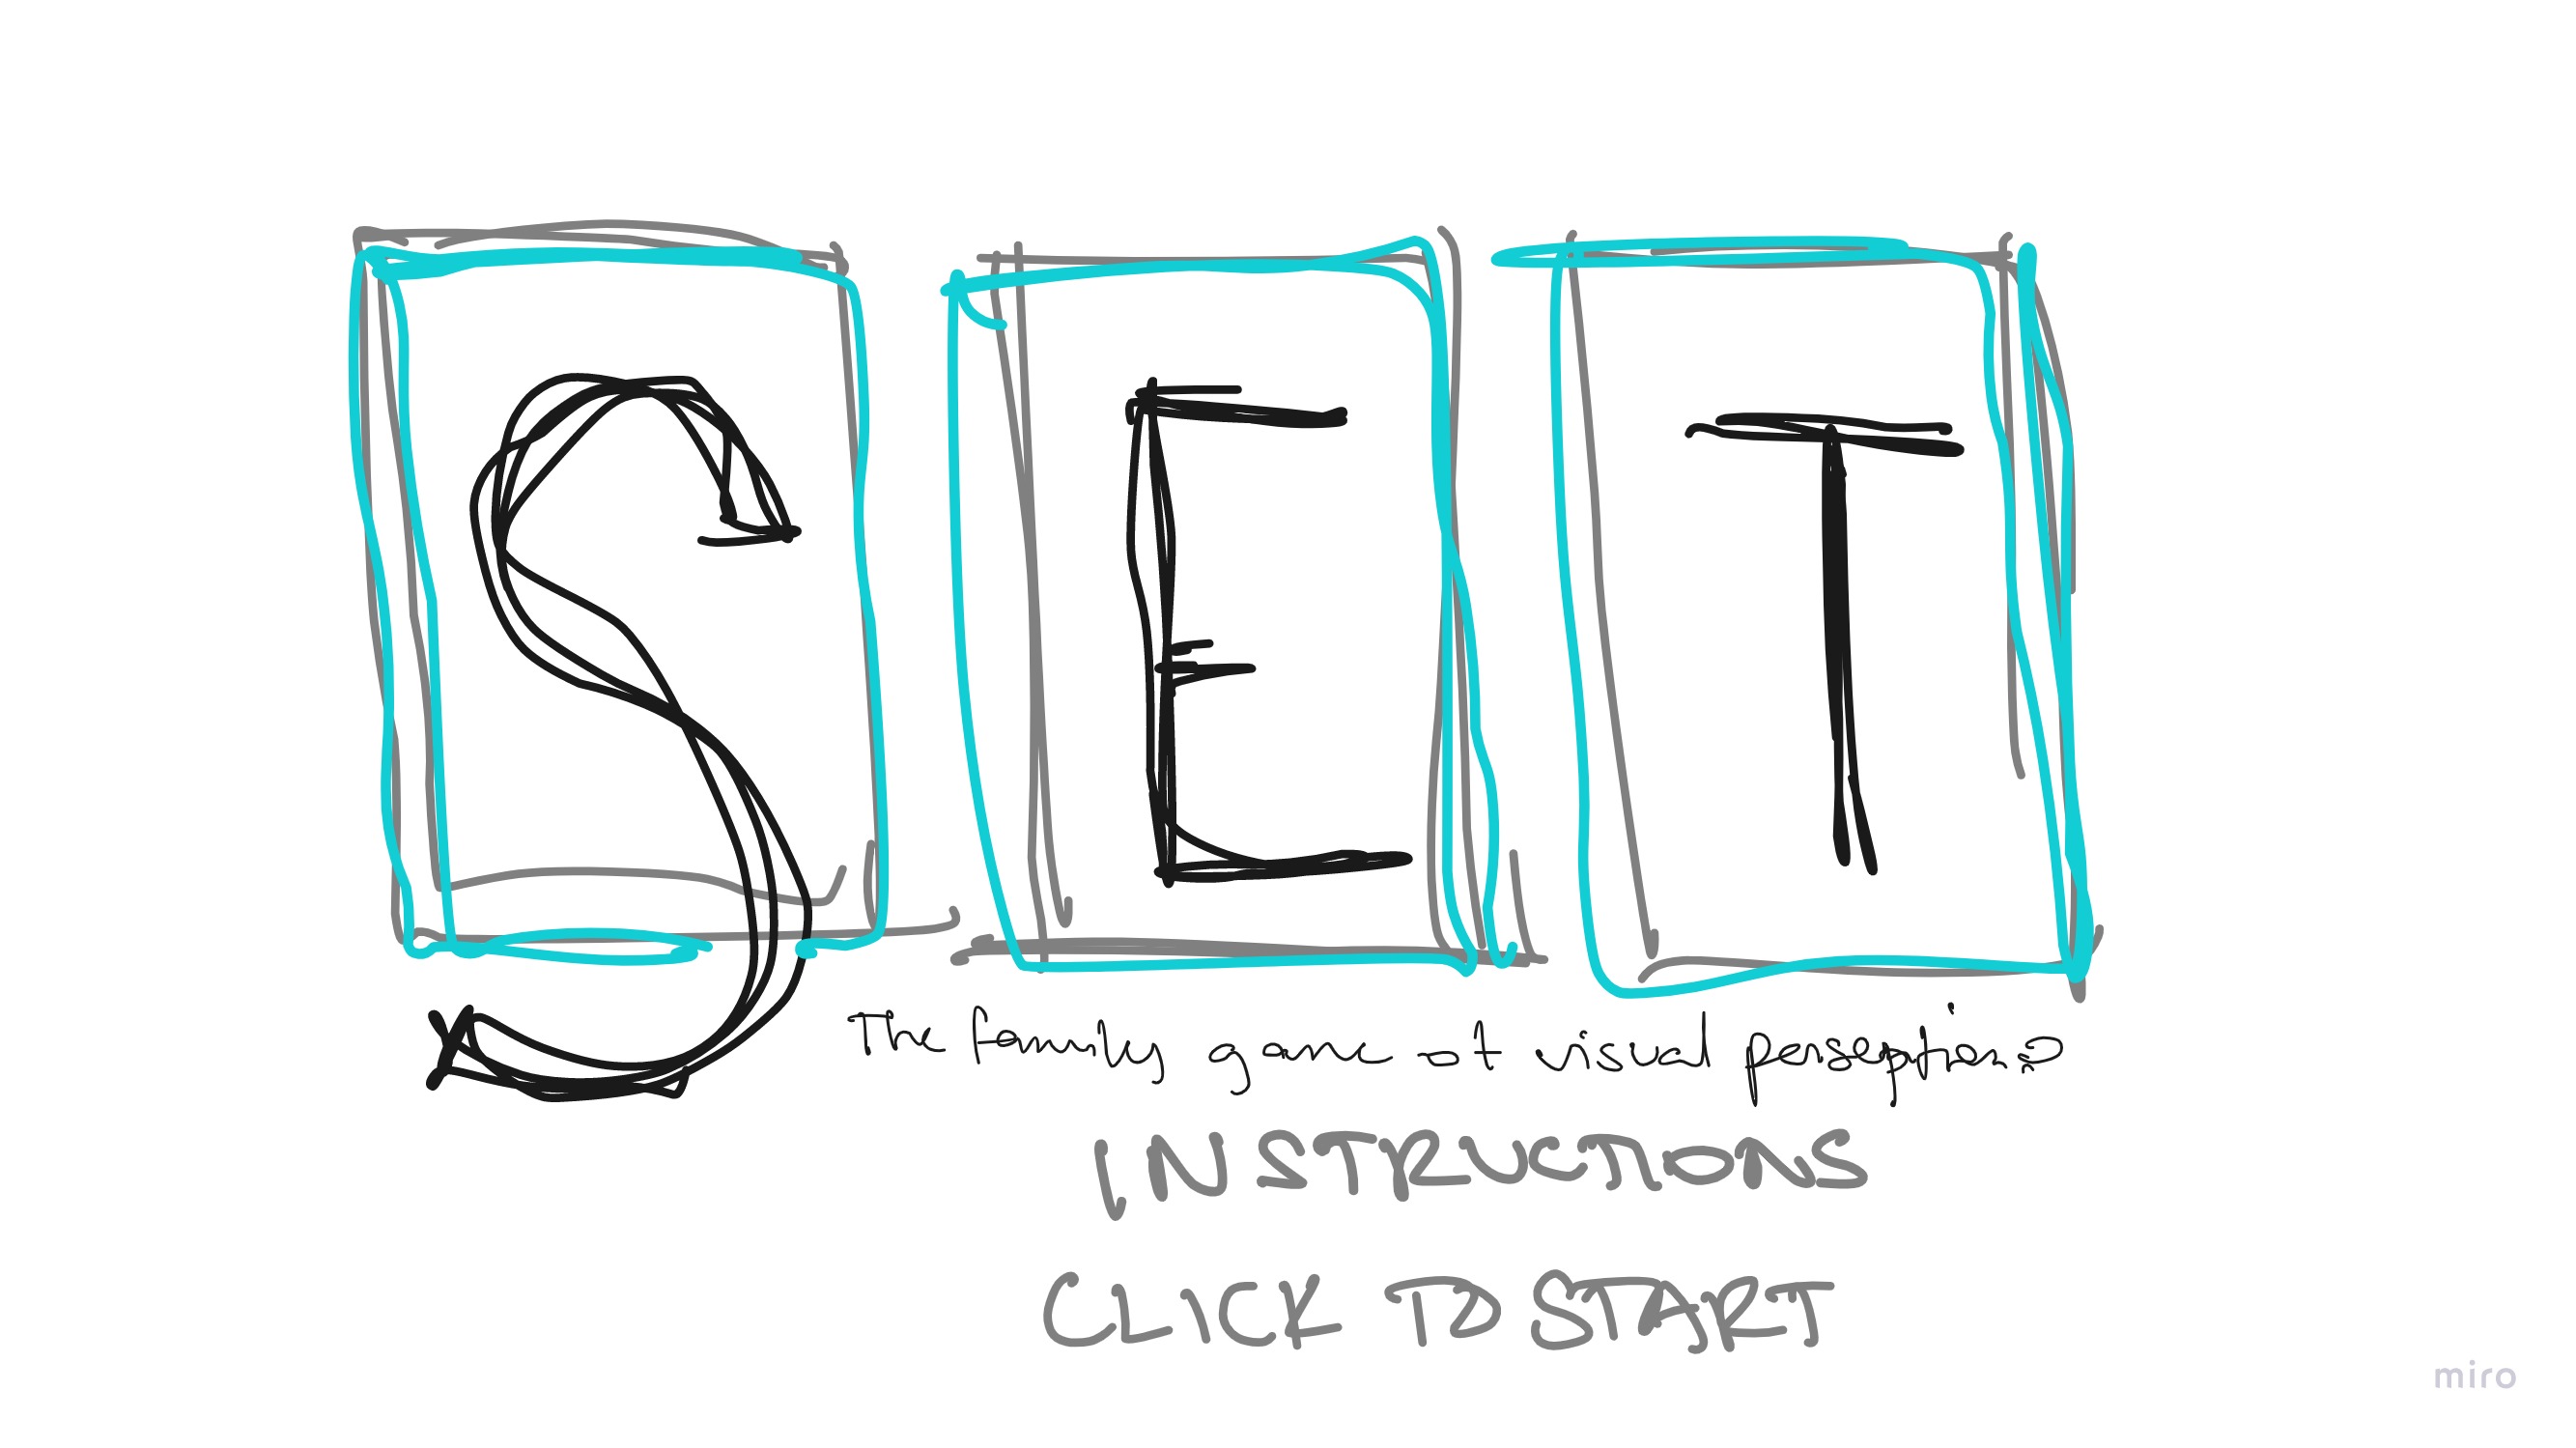 SET
The family game of visual perseption.
INSTRUCTIONS
CLICK TO START
miro